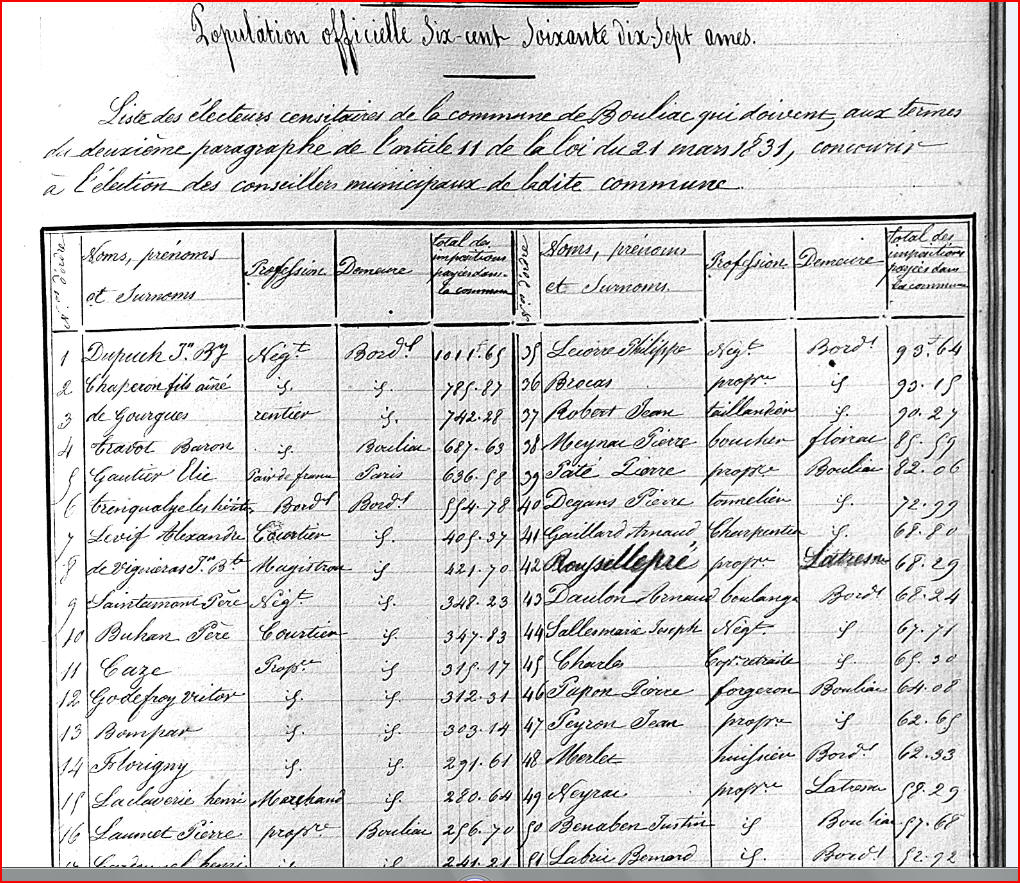 Population officielle Six-cent Soixante dix-Sept ames.
Liste des électeurs censitaires de la commune de Bouliac qui doivent, aux termes
du deuxième paragraphe de l'article 11 de la loi du 21 mars 1831, concourir
à l'élection des conseillers municipaux de ladite commune.
Nos d'ordre Noms, prénoms et Surnoms Profession Demeure total des impositions payées dans la commune Nos d'ordre Noms, prénoms et Surnoms. Profession Demeure total des impositions payées dans la commune
1 Dupuch Jn Bte Négt. Bordx 1011f.65 35 Lecorre Philippe Négt. Bordx 93f.64
2 Chaperon fils aîné id. id. 785.87 36 Brocas propre id 93.15
3 de Gourgues rentier id. 742.28 37 Robert Jean taillandier id. 90.27
4 travot Baron id. Bouliac 687.63 38 Meynac Pierre boucher floirac 85.59
5 Gautier Elie Pair de france Paris 636.58 39 Paté Pierre propre Bouliac 82.06
6 Bordx Bordx 554.78 40 Degans Pierre tonnelier id. 72.99
7 Alexandre Courtier id. 405.37 41 Gaillard Arnaud Charpentier id. 68.80
8 de vignieras Jn Bte Magistrat id 421.70 42 propre Latresne 68.29
9 Saintamont Père Négt. id. 348.23 43 Daulon Arnaud boulanger Bordx 68.24
10 Buhan Père Courtier id. 347.83 44 Sallesmarie Joseph Négt. id 67.71
11 Caze Propre id 315.17 45 Charles retraité id. 65.30
12 Godefroy victor id. id. 312.31 46 Papon Pierre forgeron Bouliac 64.08
13 Bompar id. id. 303.14 47 Peyron Jean propre id 62.65
14 Florigny id. id. 291.61 48 Merlet huissier Bordx 62.33
15 Laclaverie henri Marchand id. 280.64 49 Neyrac propre Latresne 58.29
16 Laumet Pierre propre Bouliac 256.70 50 Benaben Justin id Bouliac 57.68
henri 241.21 51 Labrie Bernard id. Bordx 52.92